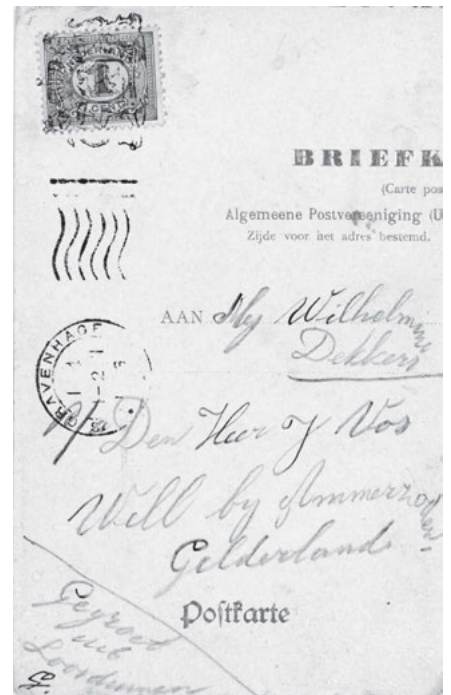 NEDERLAND
1
CENT
BRIEFK
(Carte pos
Algemeene Postvereeniging (U
Zijde voor het adres bestemd.
GRAVENHAGE
AAN Mej Wilhelmine
Dekkers
p/ Den Heer J Vos
Well by Ammerzoden
Gelderland
Postkarte
Gegroet
uit
Loosduinen
G.